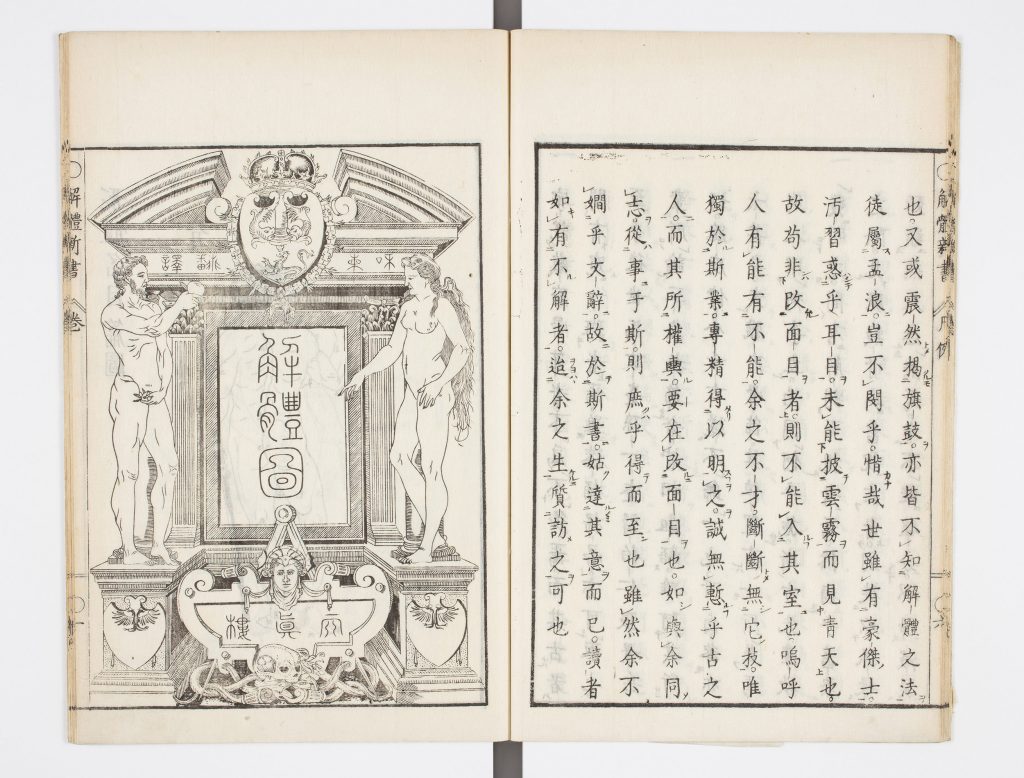 解體新書 凡例 六
也。又或震然揭旗鼓。亦皆不知解體之法
徒屬孟浪。豈不閔乎。惜哉世雖有豪傑士。
汚習惑乎耳目。未能披雲霧而見青天也。
故苟非改面目者。則不能入其室也嗚呼
人有能有不能。余之不才。斷斷無它技。唯
獨於斯業。專精得以明之。誠無慙乎古之
人。而其所權輿。要在改面目也。如與余同
志。從事于斯則庶乎得而至也雖然余不
嫺乎文辭。故於斯書。姑達其意而已。讀者
如有不解者。迨余之生質訪之可也
解體圖
天眞樓
解體新書 卷